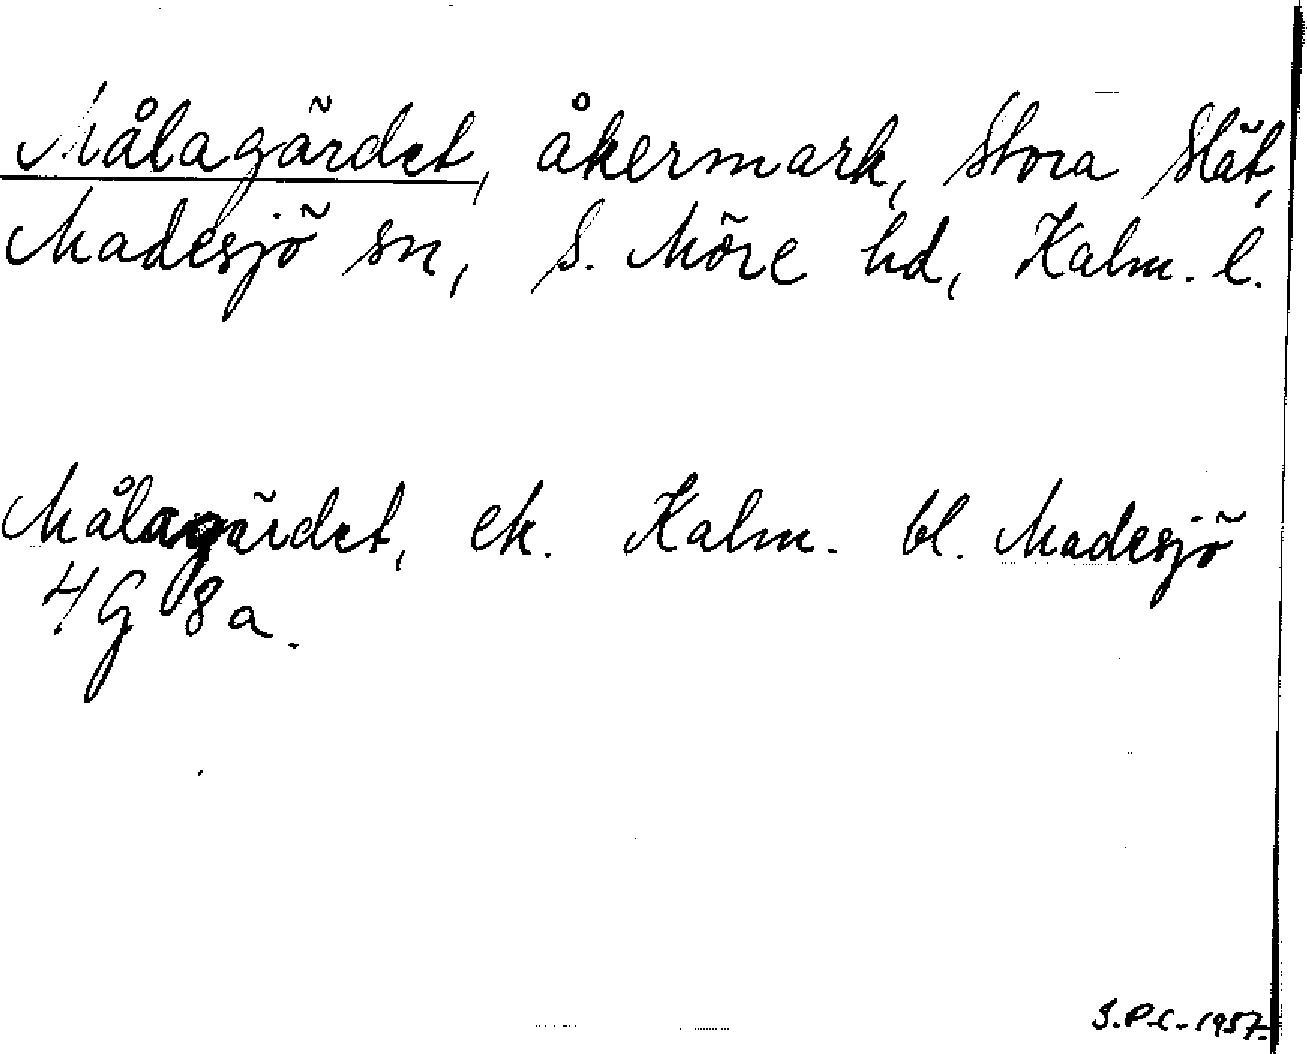 Målagärdet, åkermark, Stora Slät,
Madesjö sn, S. Möre hd, Kalm. l.
Målagärdet, ek. Kalm. bl. Madesjö
4G 8a.
S.P.C. - 1957.